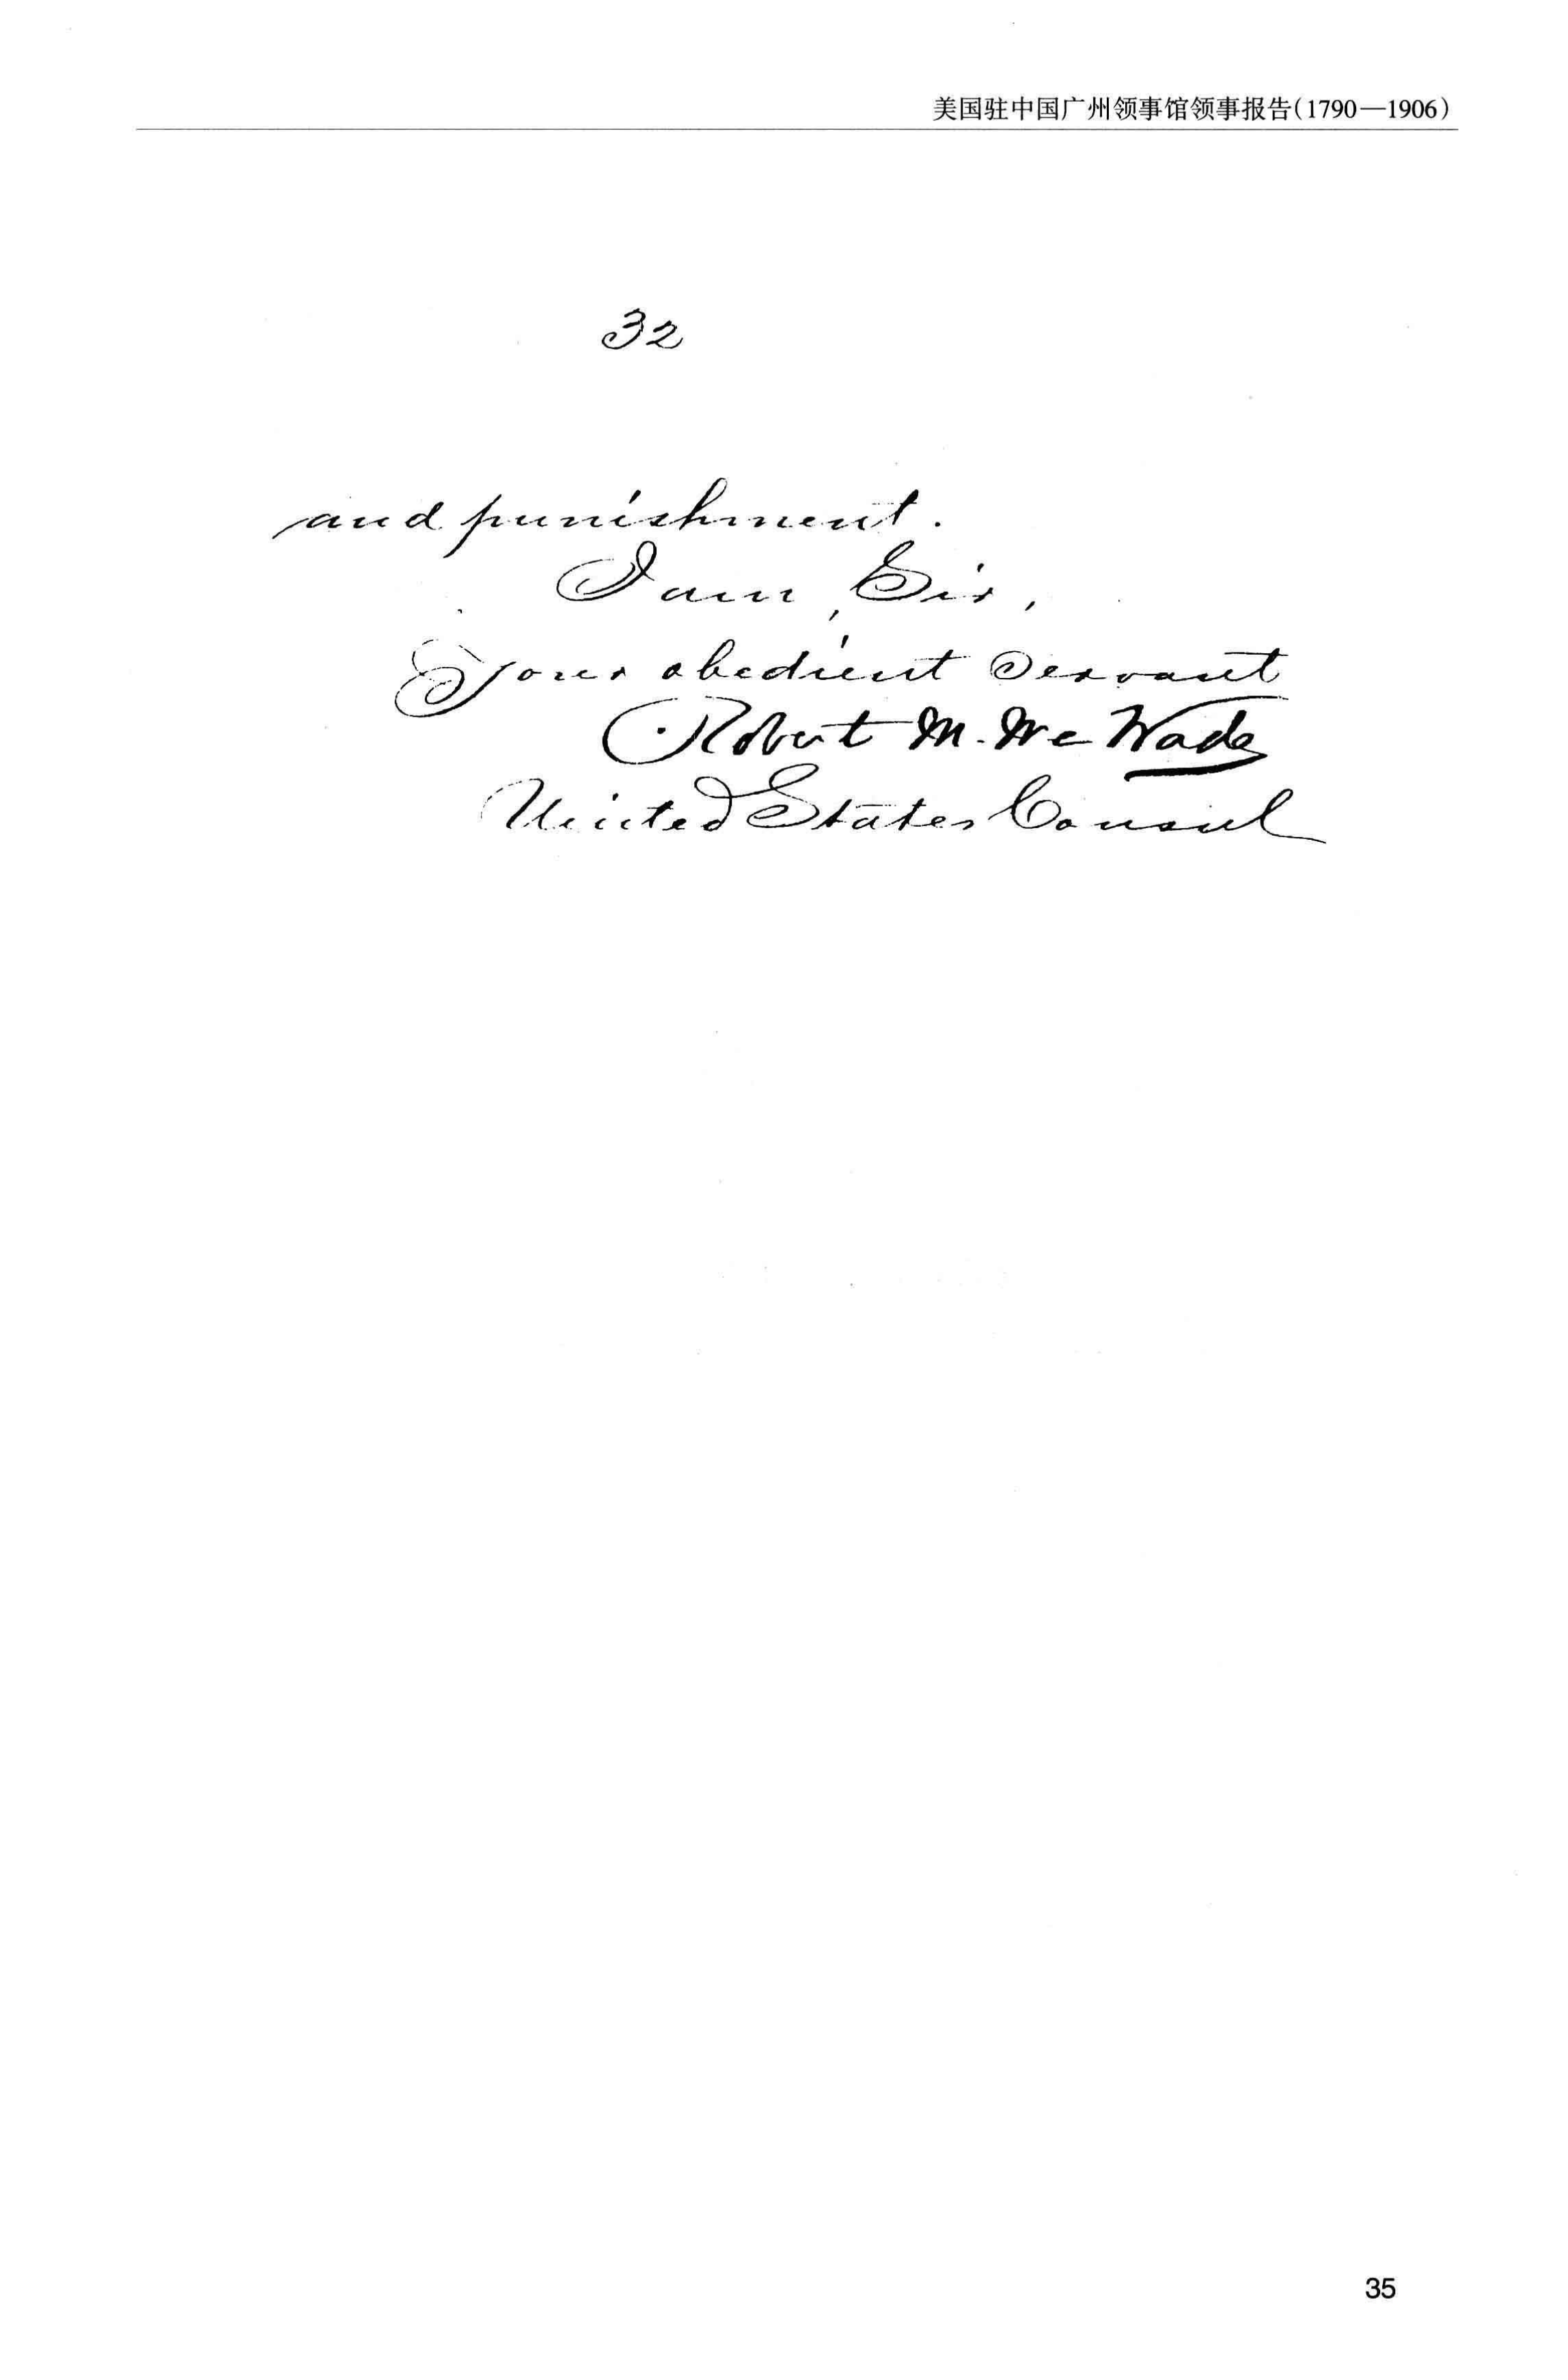 美国驻中国广州领事馆领事报告(1790—1906)
32
and punishment.
I am, Sir,
Your obedient Servant
Robert M. McWade
United States Consul
35